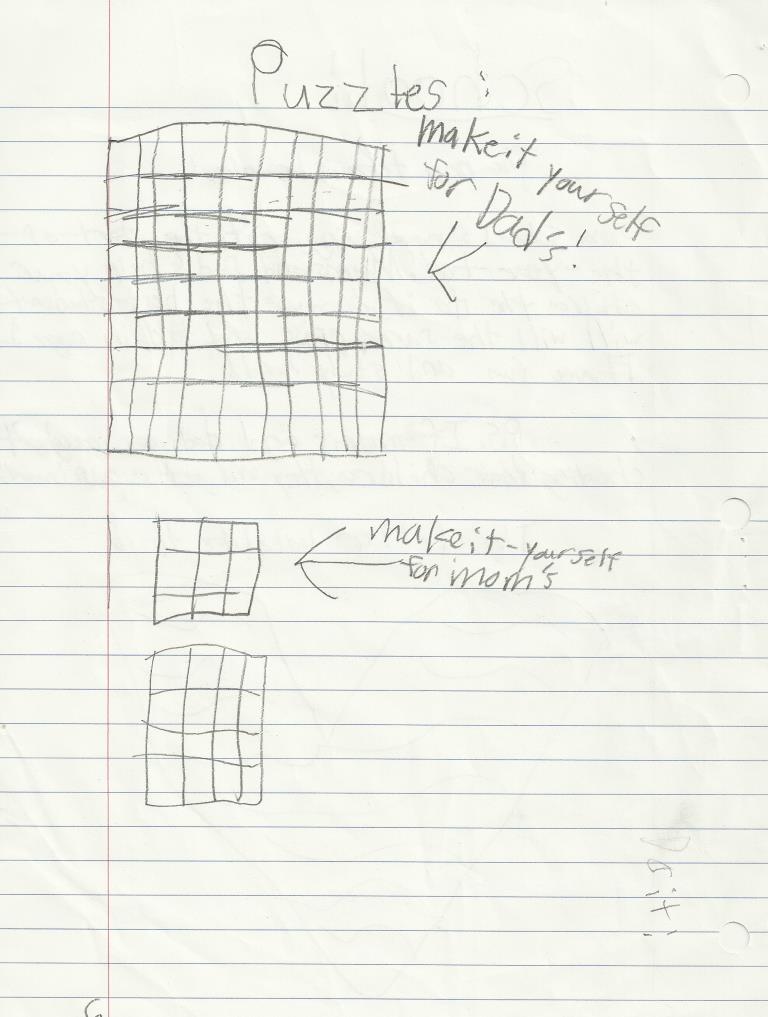 Puzztes:
make it your self
for Dad's!
make it-yourself
for mom's